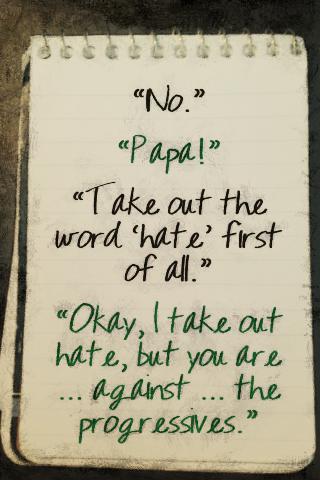 “No.”
“Papa!”
“Take out the
word ‘hate’ first
of all.”
“Okay, I take out
hate, but you are
... against ... the
progressives.”